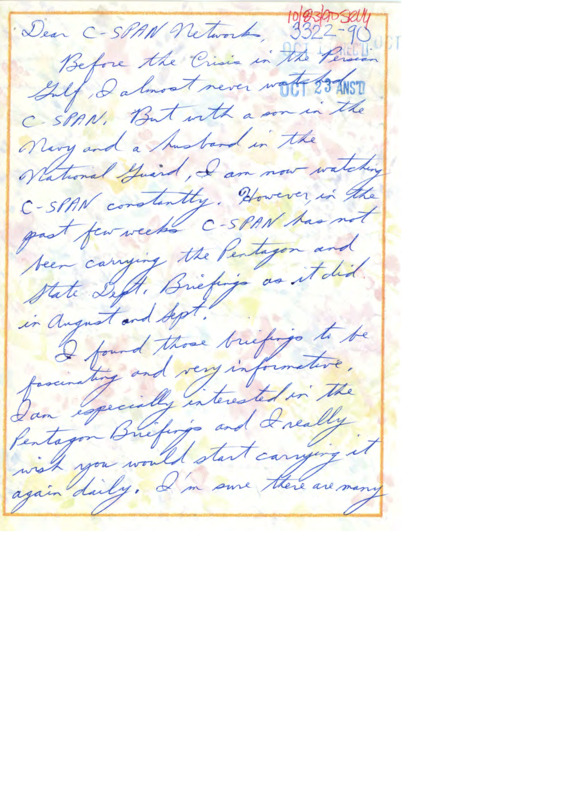 10/23/90
Dear C-SPAN Networks,
3322-90
OCT
Before the Crisis in the Persian
Gulf, I almost never watched
OCT 23 ANS'D
C-SPAN. But with a son in the
Navy and a husband in the
National Guard, I am now watching
C-SPAN constantly. However, in the
past few weeks C-SPAN has not
been carrying the Pentagon and
State Dept. Briefings as it did
in August and Sept.
I found those briefings to be
fascinating and very informative.
I am especially interested in the
Pentagon Briefings and I really
wish you would start carrying it
again daily. I'm sure there are many